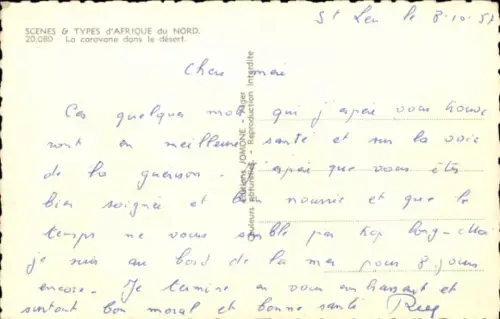 SCENES & TYPES d'AFRIQUE du NORD.
20.080 La caravane dans le désert.
St Leu le 8.10.57
Editions JOMONE - Alger
Couleurs naturelles - Reproduction interdite
Ces quelques mots qui j'espère vous trouve
ront en meilleure santé et sur la voie
de la guérison. j'espère que vous êtes
bien soignée et bien nourrie et que le
temps ne vous semble pas trop long - moi
je suis au bord de la mer pour 8 jours
encore. Je termine en vous embrassant et
surtout bon moral et bonne santé